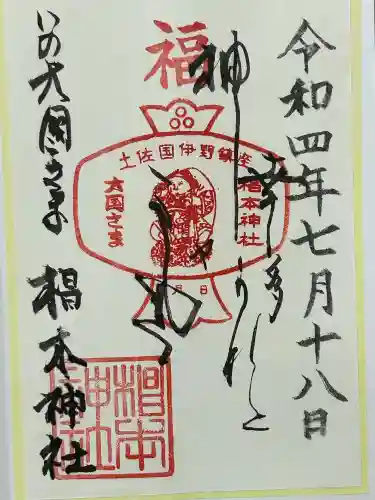 令和四年七月十八日
福
神
幸多かれと
土佐国伊野鎮座
椙本神社
大国さま
月 日
いの大国さま 椙本神社
椙本神社